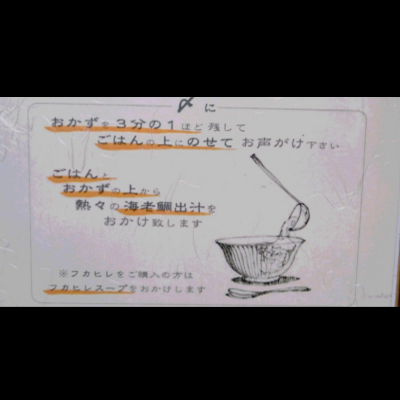 〆に
おかずを3分の1ほど残して
ごはんの上にのせて お声がけ下さい
ごはんと
おかずの上から
熱々の海老鯛出汁を
おかけ致します
※フカヒレをご購入の方は
フカヒレスープをおかけします